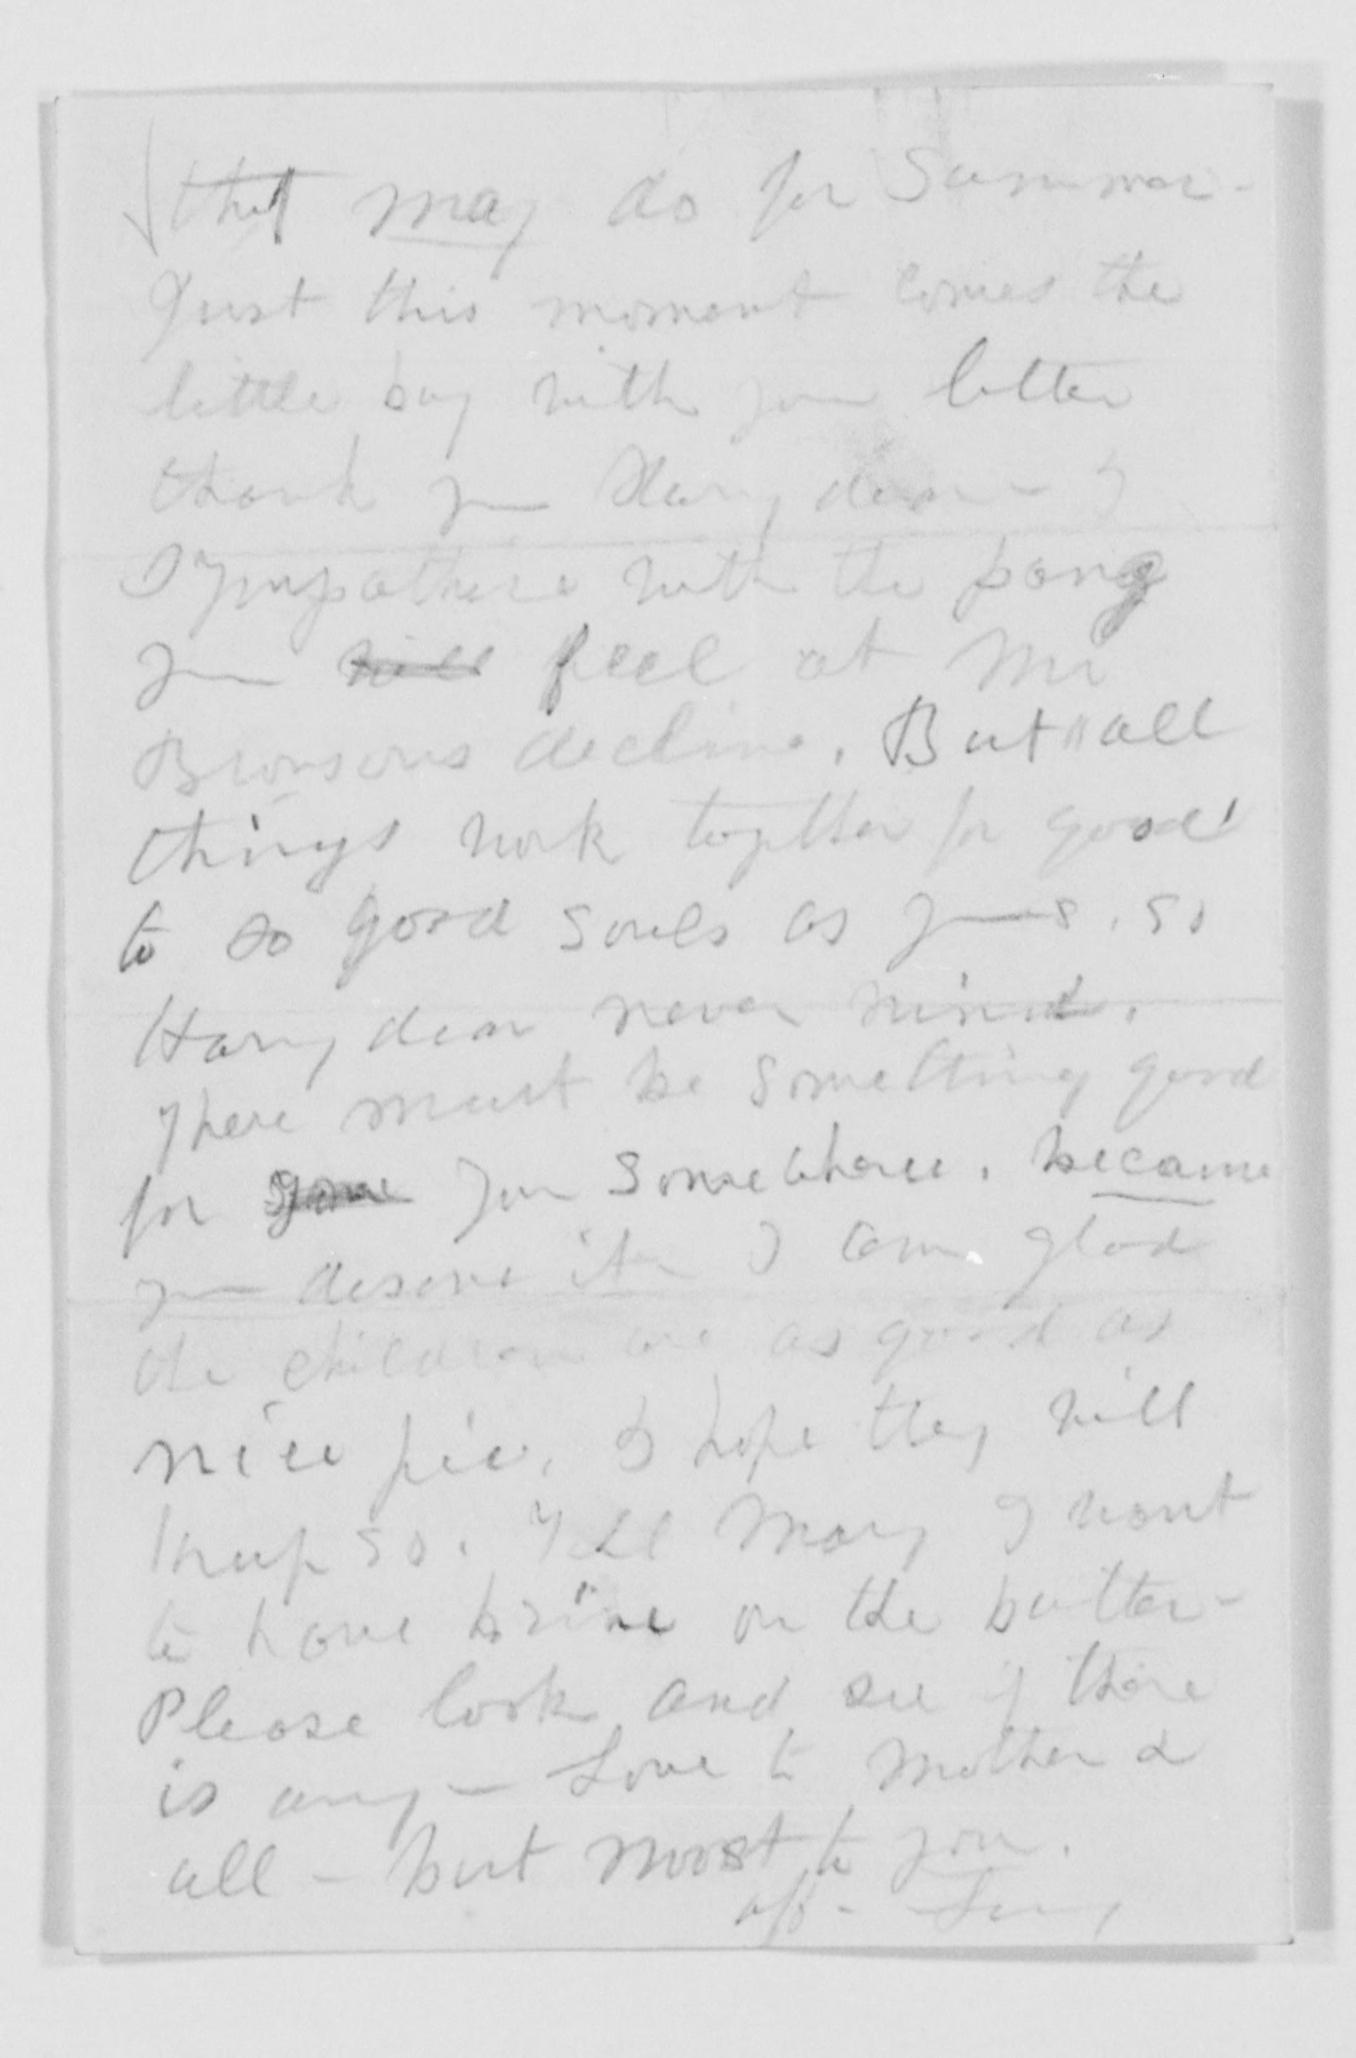 that may do for Summer -
Just this moment comes the
little boy with your letter
thank you Harry dear - I
sympathise with the pang
you will feel at Mr
Bronsons decline. But "all
things work together for good'
to so good souls as yours. so
Harry dear never mind.
There must be something good
for your you somewhere. because
you deserve it - I am glad
the children are as good as
nice pie. I hope they will
keep so. Tell Mary I want
to have brine on the butter -
Please look and see if there
is any - Love to Mother &
all - but most to you.
aff -